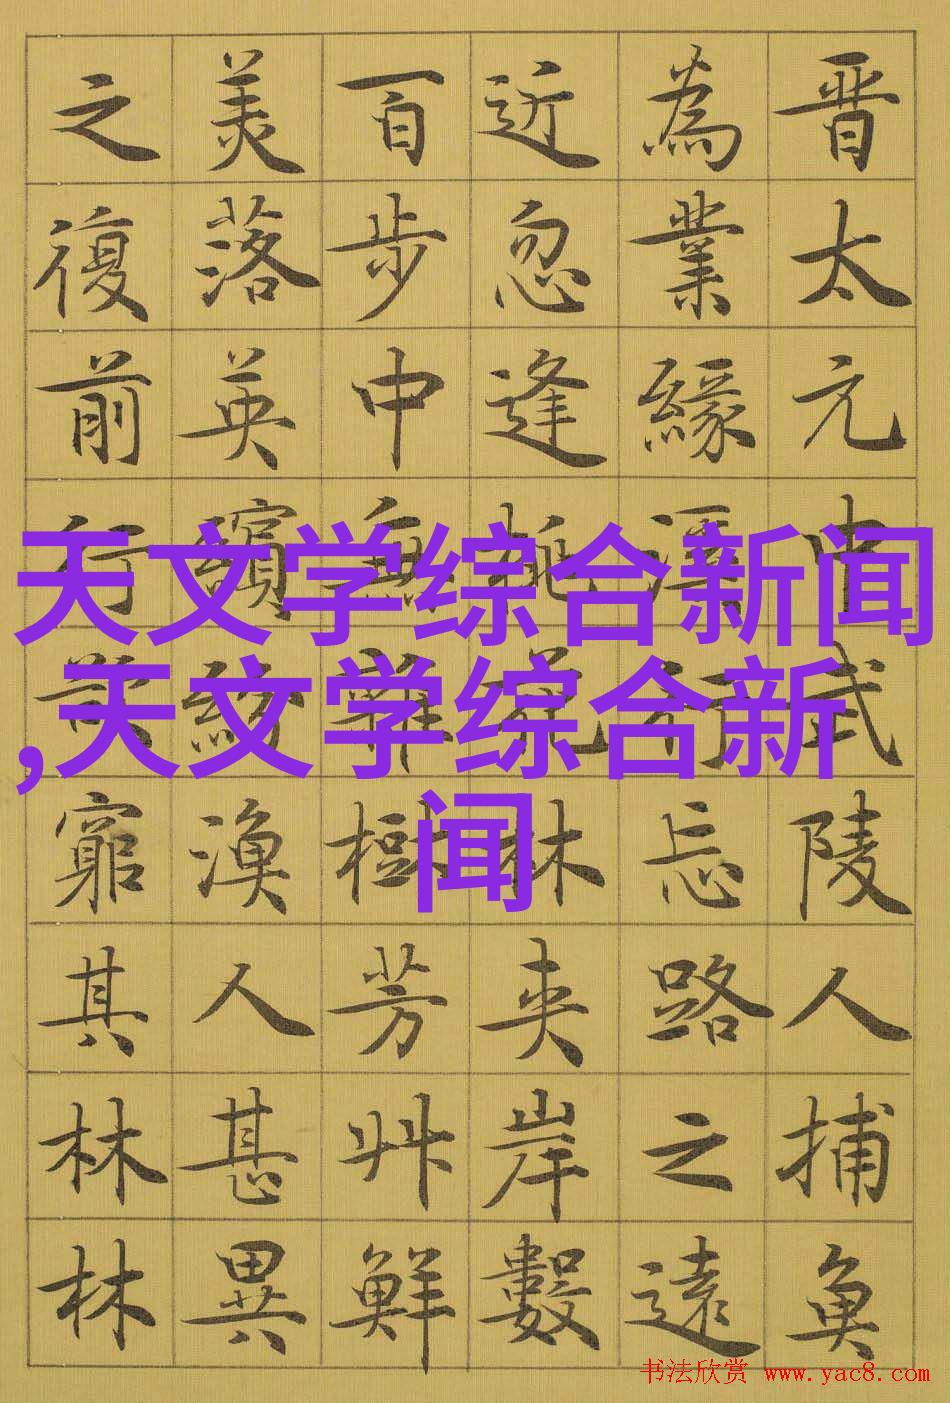 晋太元中武陵人捕魚
為業緣溪行忘路之遠
近忽逢桃花林夾岸數
百步中無雜樹芳艸鮮
美落英繽紛漁人甚異
之復前行欲窮其林林
天文学综合新闻
,天文学综合新
闻
书法欣赏 www.yac8.com